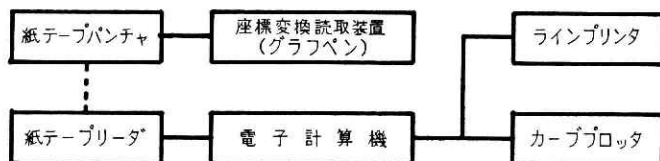 紙テープパンチャ
座標変換読取装置
(グラフペン)
ラインプリンタ
紙テープリーダ
電子計算機
カーブプロッタ